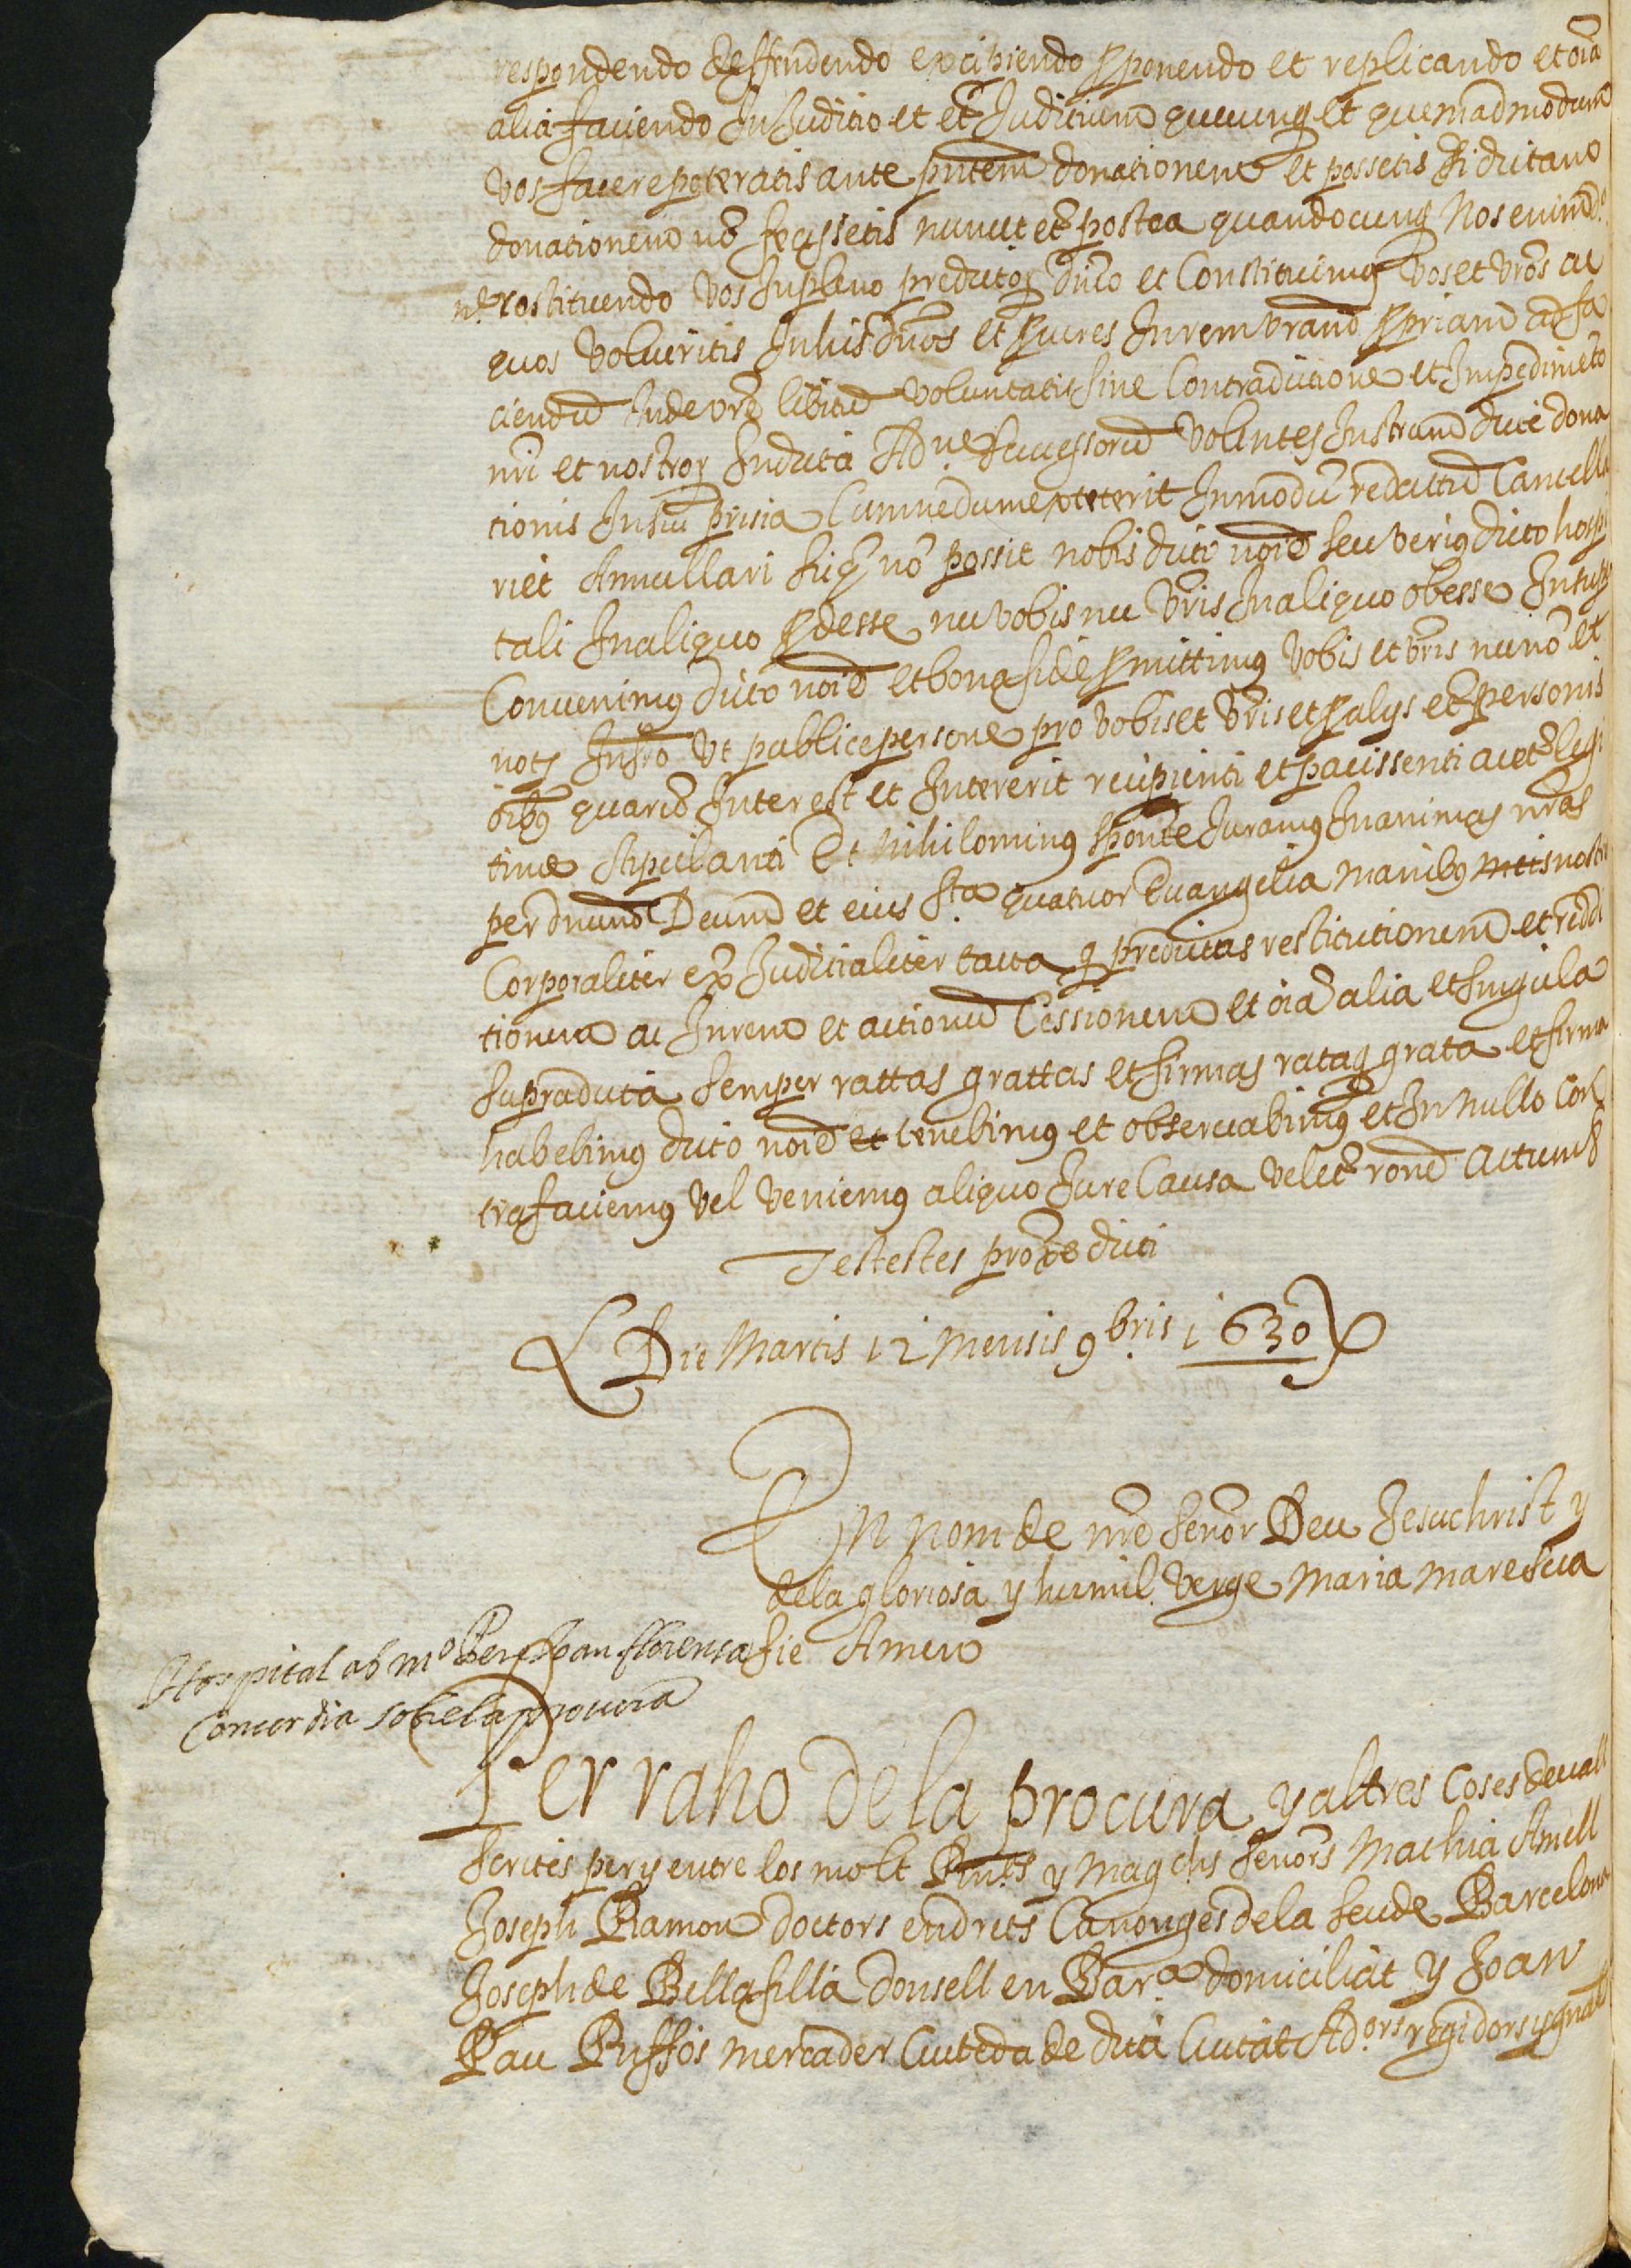 respondendo deffendendo excipiendo proponendo et replicando et oia
alia faciendo In Juditio et ext Juditium quecunq et quemadmodum
vos facere poteratis ante pntem donationem et possetis si dictam
donationem no fecissetis nunc et postea quandocunq Nos enim do
ne restituendo vos In pleno predictor dnio et Constituimus vos et vros ac
quos volueritis In his dnos et procures In rem vram propriam ad fa
ciendu Inde vre libitu voluntatis sine Contradictione et Impedimeto
nri et nostror In dicta Adne successoru volentes Instrum dicte dona
tionis In sui prisia Cum nedum exteterit In modu redactu Cancella
riet Annullari sicq no possit nobis dicto noie seu verius dicto hospi
tali In aliquo prodesse nec vobis nec vris In aliquo obesse Insuper
Convenimus dicto noie et bona fide promittimus vobis et vris nec no et
noty Infro Vt publice persone pro vobis et vris et pro alys et personis
oibus quaru Interest et Intererit recipienti et paciscenti ac et legi
time stipulanti Et Nihilominus sponte Juramus In animas nras
per dnum Deum et eius sta quatuor Evangelia manibus meis nostris
Corporaliter ex Juditialiter tacta q predictas restitutionem et reddi
tionem ac Jurem et actionu Cessionem et oia alia et singula
supradicta semper rattas grattas et firmas rataq grata et firma
habebimus dicto noie et tenebimus et observabimus et In nullo Con
trafaciemus vel veniemus aliquo Jure Causa vel et rone Actum &
Testes proxe dicti
Die Martis 12 Mensis 9bris 1630
En nom de nre senor Deu Jesuchrist y
de la gloriosa y humil Verge Maria mare sua
sie Amen
Hospital ab mo Pere Joan florensa
Concordia sobre la procura
Per raho de la procura y altres coses devall
scrites per y entre los molt Rnts y Magchs senors Mathia Amell
Joseph Ramon doctors en drets Canonges de la seu de Barcelona
Joseph de Bellafilla donsell en Bara domiciliat y Joan
Pau Ruffos mercader Ciutada de dita Ciutat Adors regidors y gnals